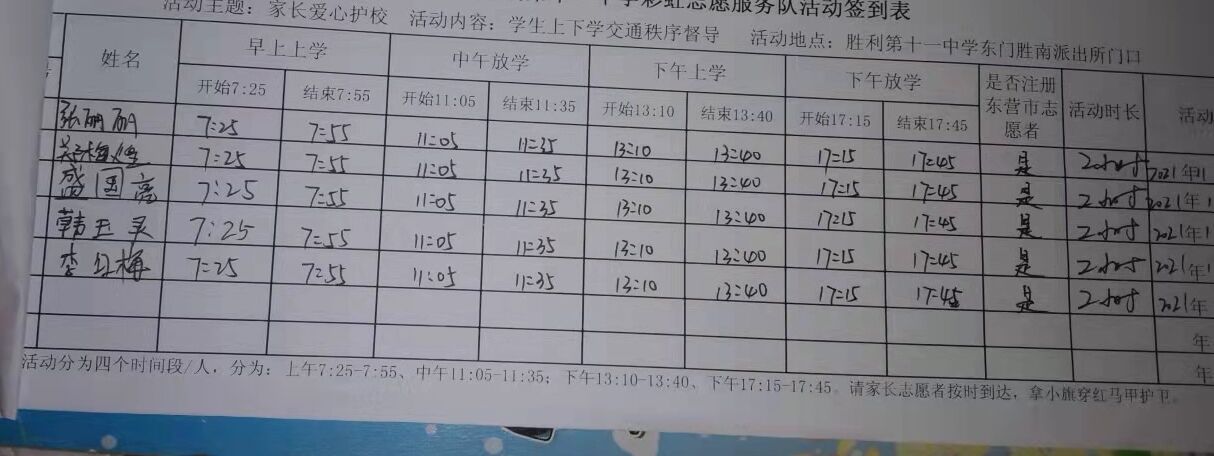 中学彩虹志愿服务队活动签到表
活动主题：家长爱心护校 活动内容：学生上下学交通秩序督导 活动地点：胜利第十一中学东门胜南派出所门口
姓名 早上上学 中午放学 下午上学 下午放学 是否注册东营市志愿者 活动时长 活动
开始7:25 结束7:55 开始11:05 结束11:35 开始13:10 结束13:40 开始17:15 结束17:45
张丽丽 7:25 7:55 11:05 11:35 13:10 13:40 17:15 17:45 是 2小时 2021年
7:25 7:55 11:05 11:35 13:10 13:40 17:15 17:45 是 2小时 2021年
盛国亮 7:25 7:55 11:05 11:35 13:10 13:40 17:15 17:45 是 2小时 2021年
韩玉 7:25 7:55 11:05 11:35 13:10 13:40 17:15 17:45 是 2小时 2021年
李 梅 7:25 7:55 11:05 11:35 13:10 13:40 17:15 17:45 是 2小时 2021年
年
年
活动分为四个时间段/人，分为：上午7:25-7:55、中午11:05-11:35；下午13:10-13:40、下午17:15-17:45。请家长志愿者按时到达，拿小旗穿红马甲护卫。